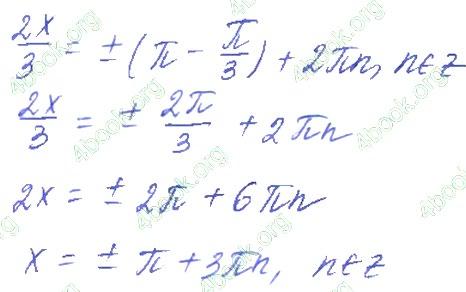 2x/3 = ±(π − π/3) + 2πn, n∈z
2x/3 = ± 2π/3 + 2πn
2x = ± 2π + 6πn
x = ± π + 3πn, n∈z
4book.org